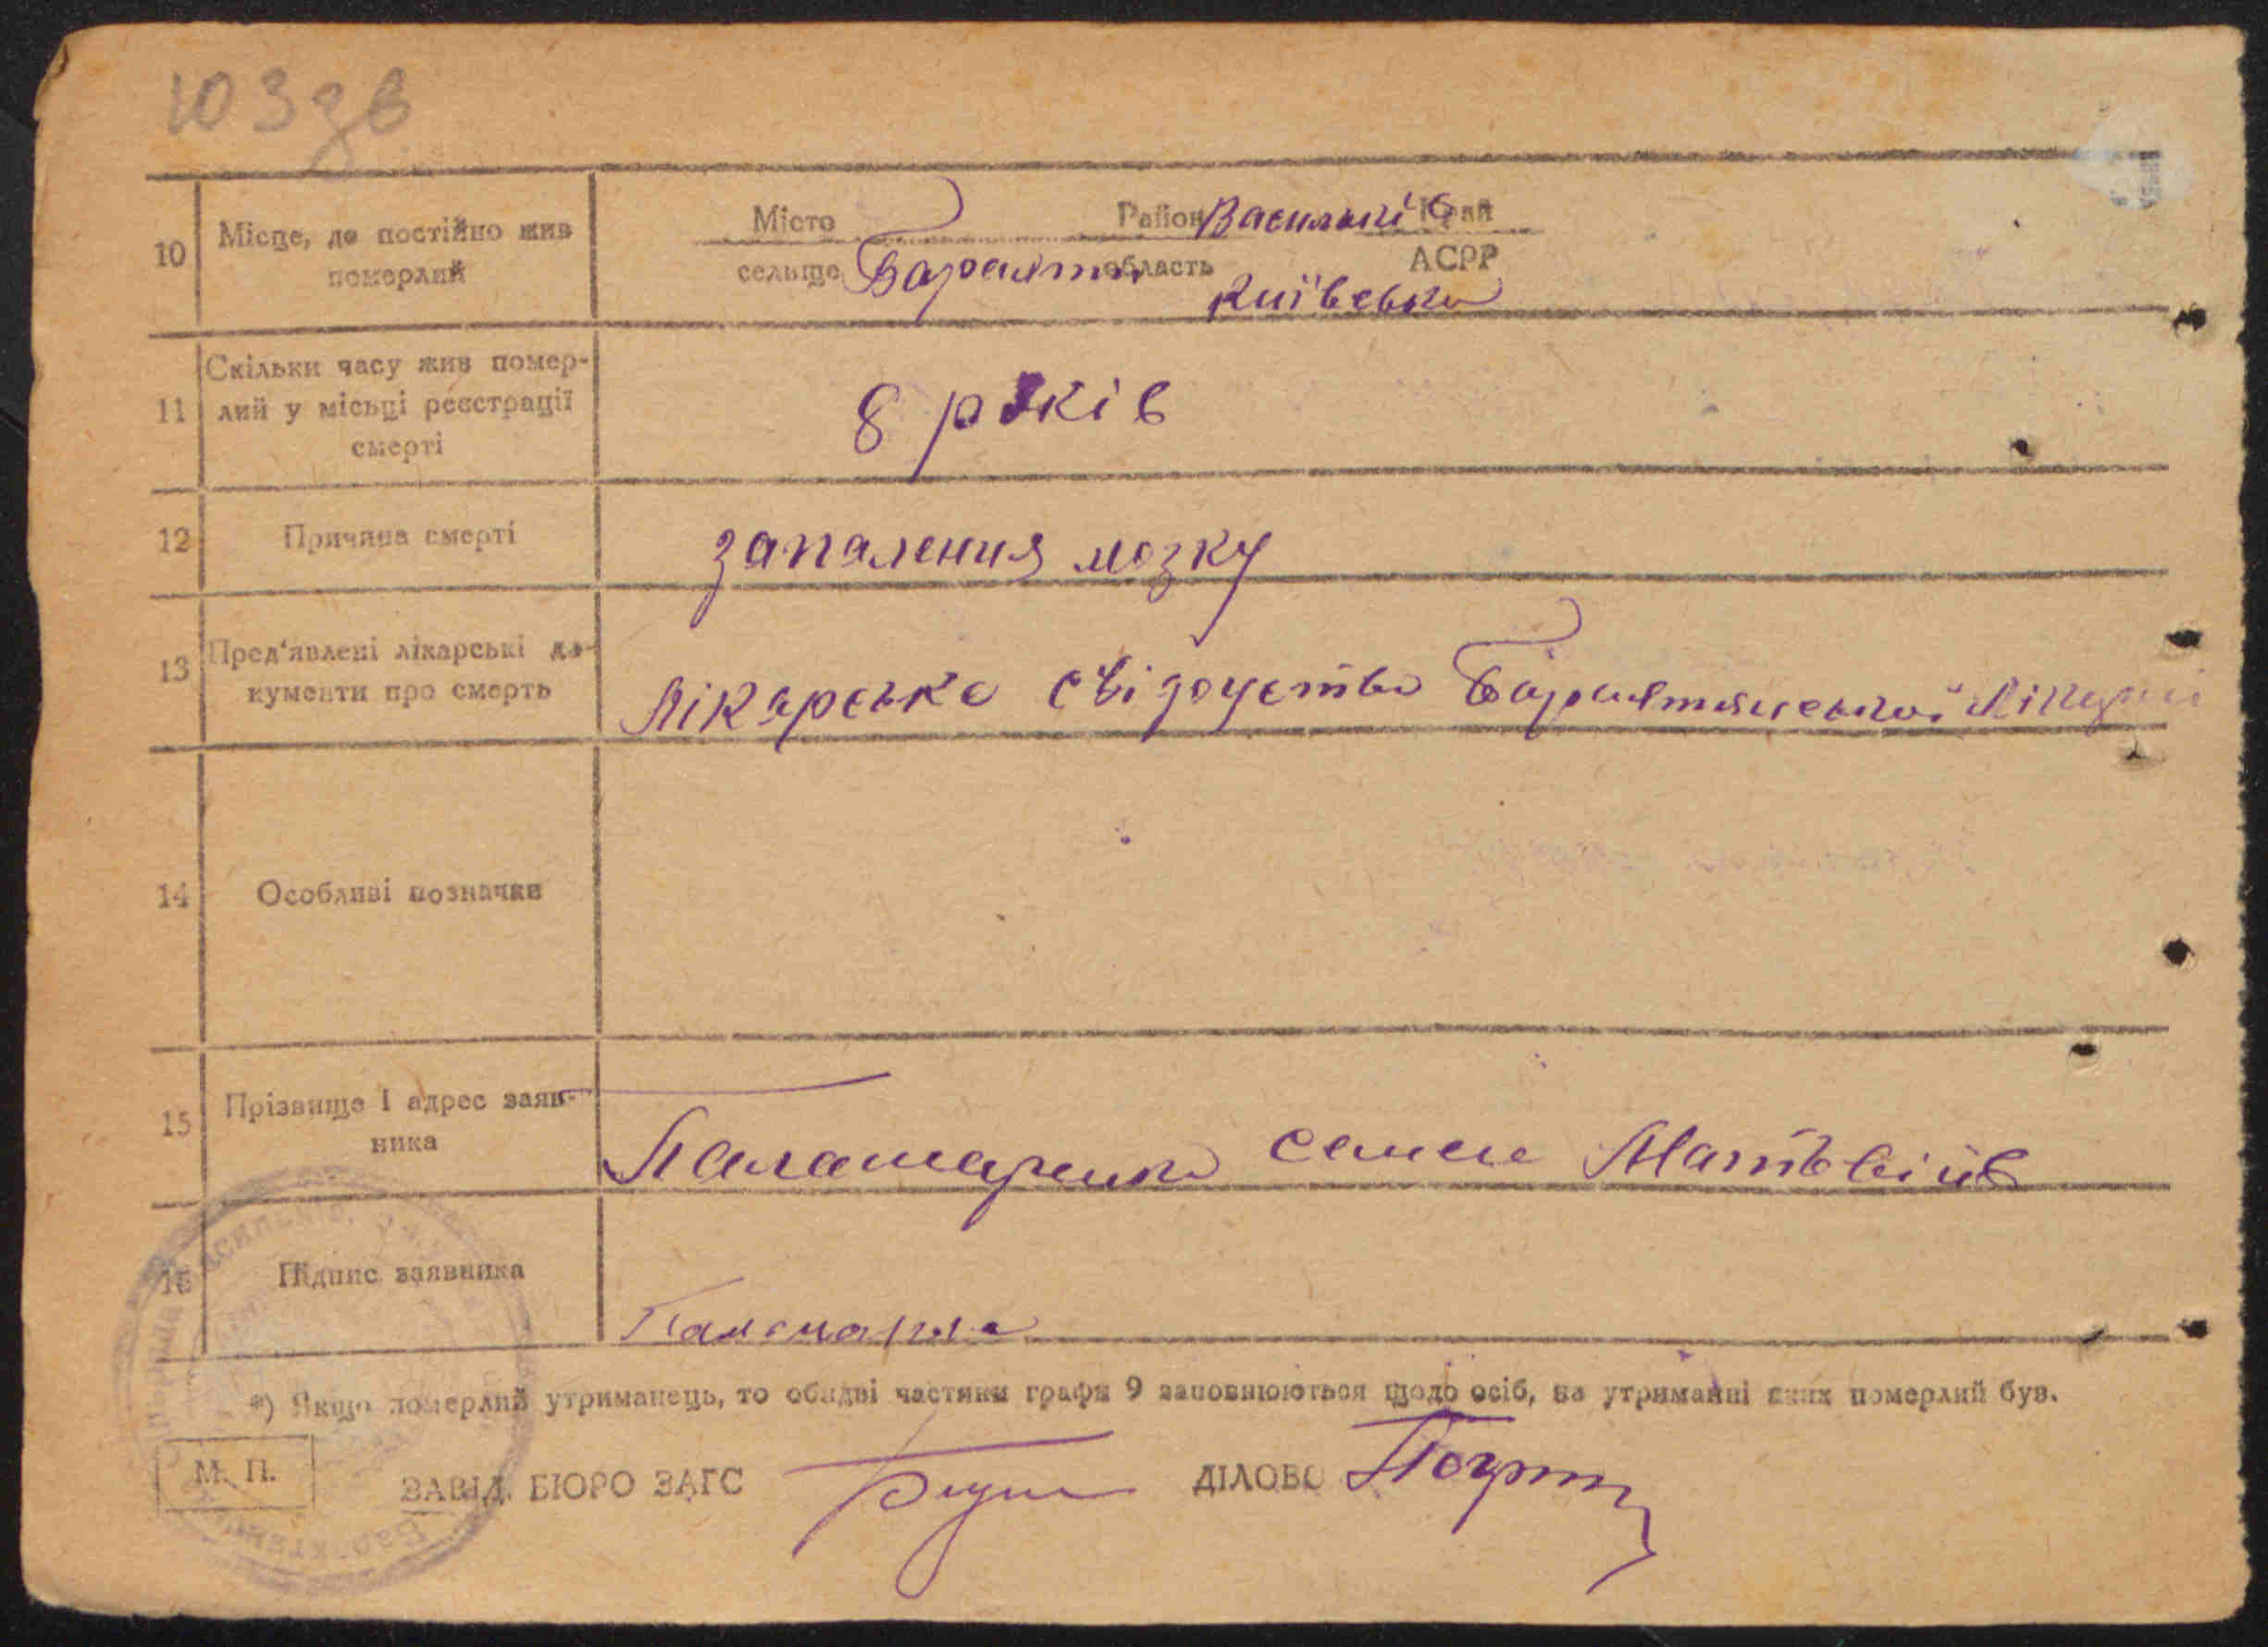 103 зв
10
Місце, де постійно жив
померлий
Місто Район Васильків Край
сельще Барахти область АСРР
Київська
11
Скільки часу жив помер-
лий у місьці реєстрації
смерті
8 років
12
Причина смерті
запалення мозку
13
Пред'явлені лікарські до-
кументи про смерть
Лікарське свідоцтво Барахтянської
14
Особливі позначки
15
Прізвище і адрес заяв-
ника
Паламаренко Семен Матвіїв
16
Підпис заявника
*) Якщо померлий утриманець, то обидві частини графи 9 заповнюються щодо осіб, на утриманні яких померлий був.
М. П.
ЗАВІД. БЮРО ЗАГС ДІЛОВО